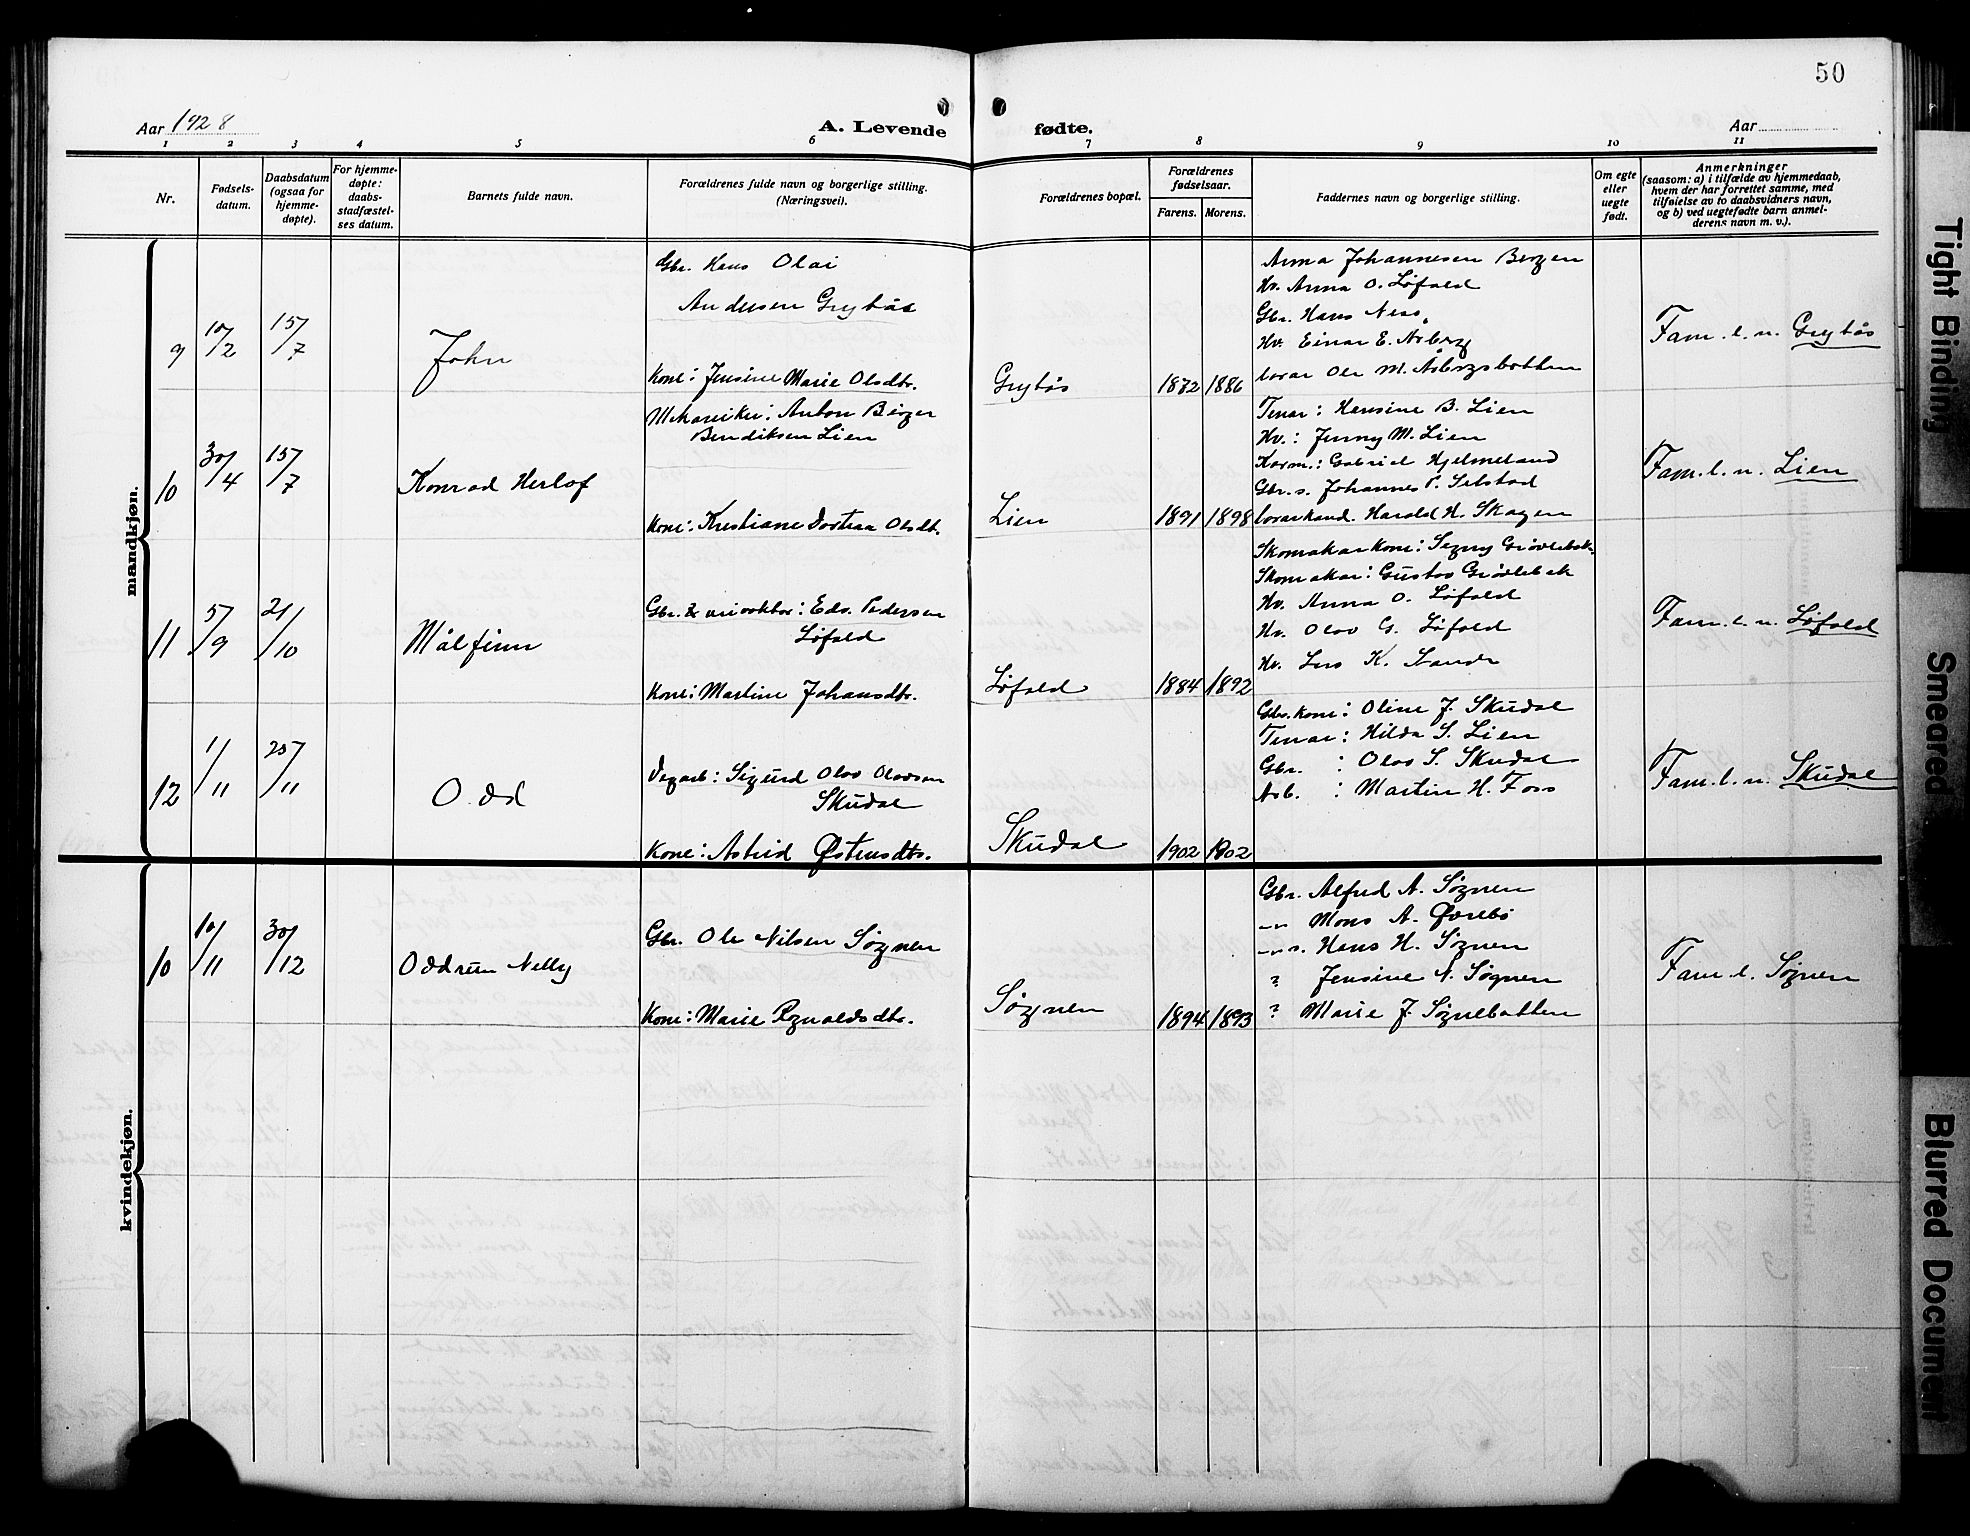 50
Aar 1928
A. Levende fødte.
Aar
1 2 3 4 5 6 7 8 9 10 11
Nr.
Fødsels-
datum.
Daabsdatum
(ogsaa for
hjemme-
døpte).
For hjemme-
døpte:
daabs-
stadfæstel-
ses datum.
Barnets fulde navn.
Forældrenes fulde navn og borgerlige stilling.
(Næringsvei).
Forældrenes bopæl.
Forældrenes
fødselsaar.
Farens. Morens.
Faddernes navn og borgerlige stilling.
Om egte
eller
uegte
født.
Anmerkninger
(saasom: a) i tilfælde av hjemmedaab,
hvem der har forrettet samme, med
tilføielse av to daabsvidners navn,
og b) ved uegtefødte barn anmel-
derens navn m. v.).
mandkjøn.
9
10/2
15/7
John
Gbr. Hans Olai
Andersen Grytås
Kone: Jensine Marie Olsdtr.
Grytås
1872 1886
Anna Johannesen Bergen
Hv. Anna O. Løfald
Gbr. Hans Ness
Hv. Einar E. Årberg
Ole M. Årbergsbotten
Fam. l. n. Grytås
10
30/4
15/7
Konrad Herlof
Mekaniker: Anton Birger
Bendiksen Lien
Kone: Kristiane Dortea Olsdt.
Lien
1891 1898
Tenar: Hansine B. Lien
Hv.: Jenny M. Lien
Gabriel Hjelmeland
Gbr. s. Johannes P. Selstad
lærarkand. Harald H. Skagen
Fam. l. n. Lien
11
5/9
21/10
Målfinn
Gbr. & Edv. Pedersen
Løfald
Kone: Martine Johansdtr.
Løfald
1884 1892
Skomakarkone: Signy Grøvlebak
Skomakar: Gustav Grøvlebak
Hv. Anna O. Løfald
Hv. Olav G. Løfald
Hv. K. Sande
Fam. l. n. Løfald
12
1/11
25/11
Odd
Vegarb: Sigurd Olav Olavsen
Skudal
Kone: Astrid Østensdtr.
Skudal
1902 1902
Gbr. kone: Oline J. Skudal
Tenar: Hilda S. Lien
Gbr. : Olav S. Skudal
Arb. : Martin H. Foss
Fam. l. n. Skudal
kvindekjøn.
10
10/11
30/12
Oddrun Nelly
Gbr. Ole Nilsen Søgnen
Kone: Marie Rgnaldsdtr.
Søgnen
1894 1893
Gbr. Alfred A. Søgnen
-"- Mons A. Øvrebø
-"- s. Hans H. Søgnen
? Jensine N. Søgnen
? Marie J. Søgnebotten
Fam. l. Søgnen
Tight Binding
Smeared
Blurred Document